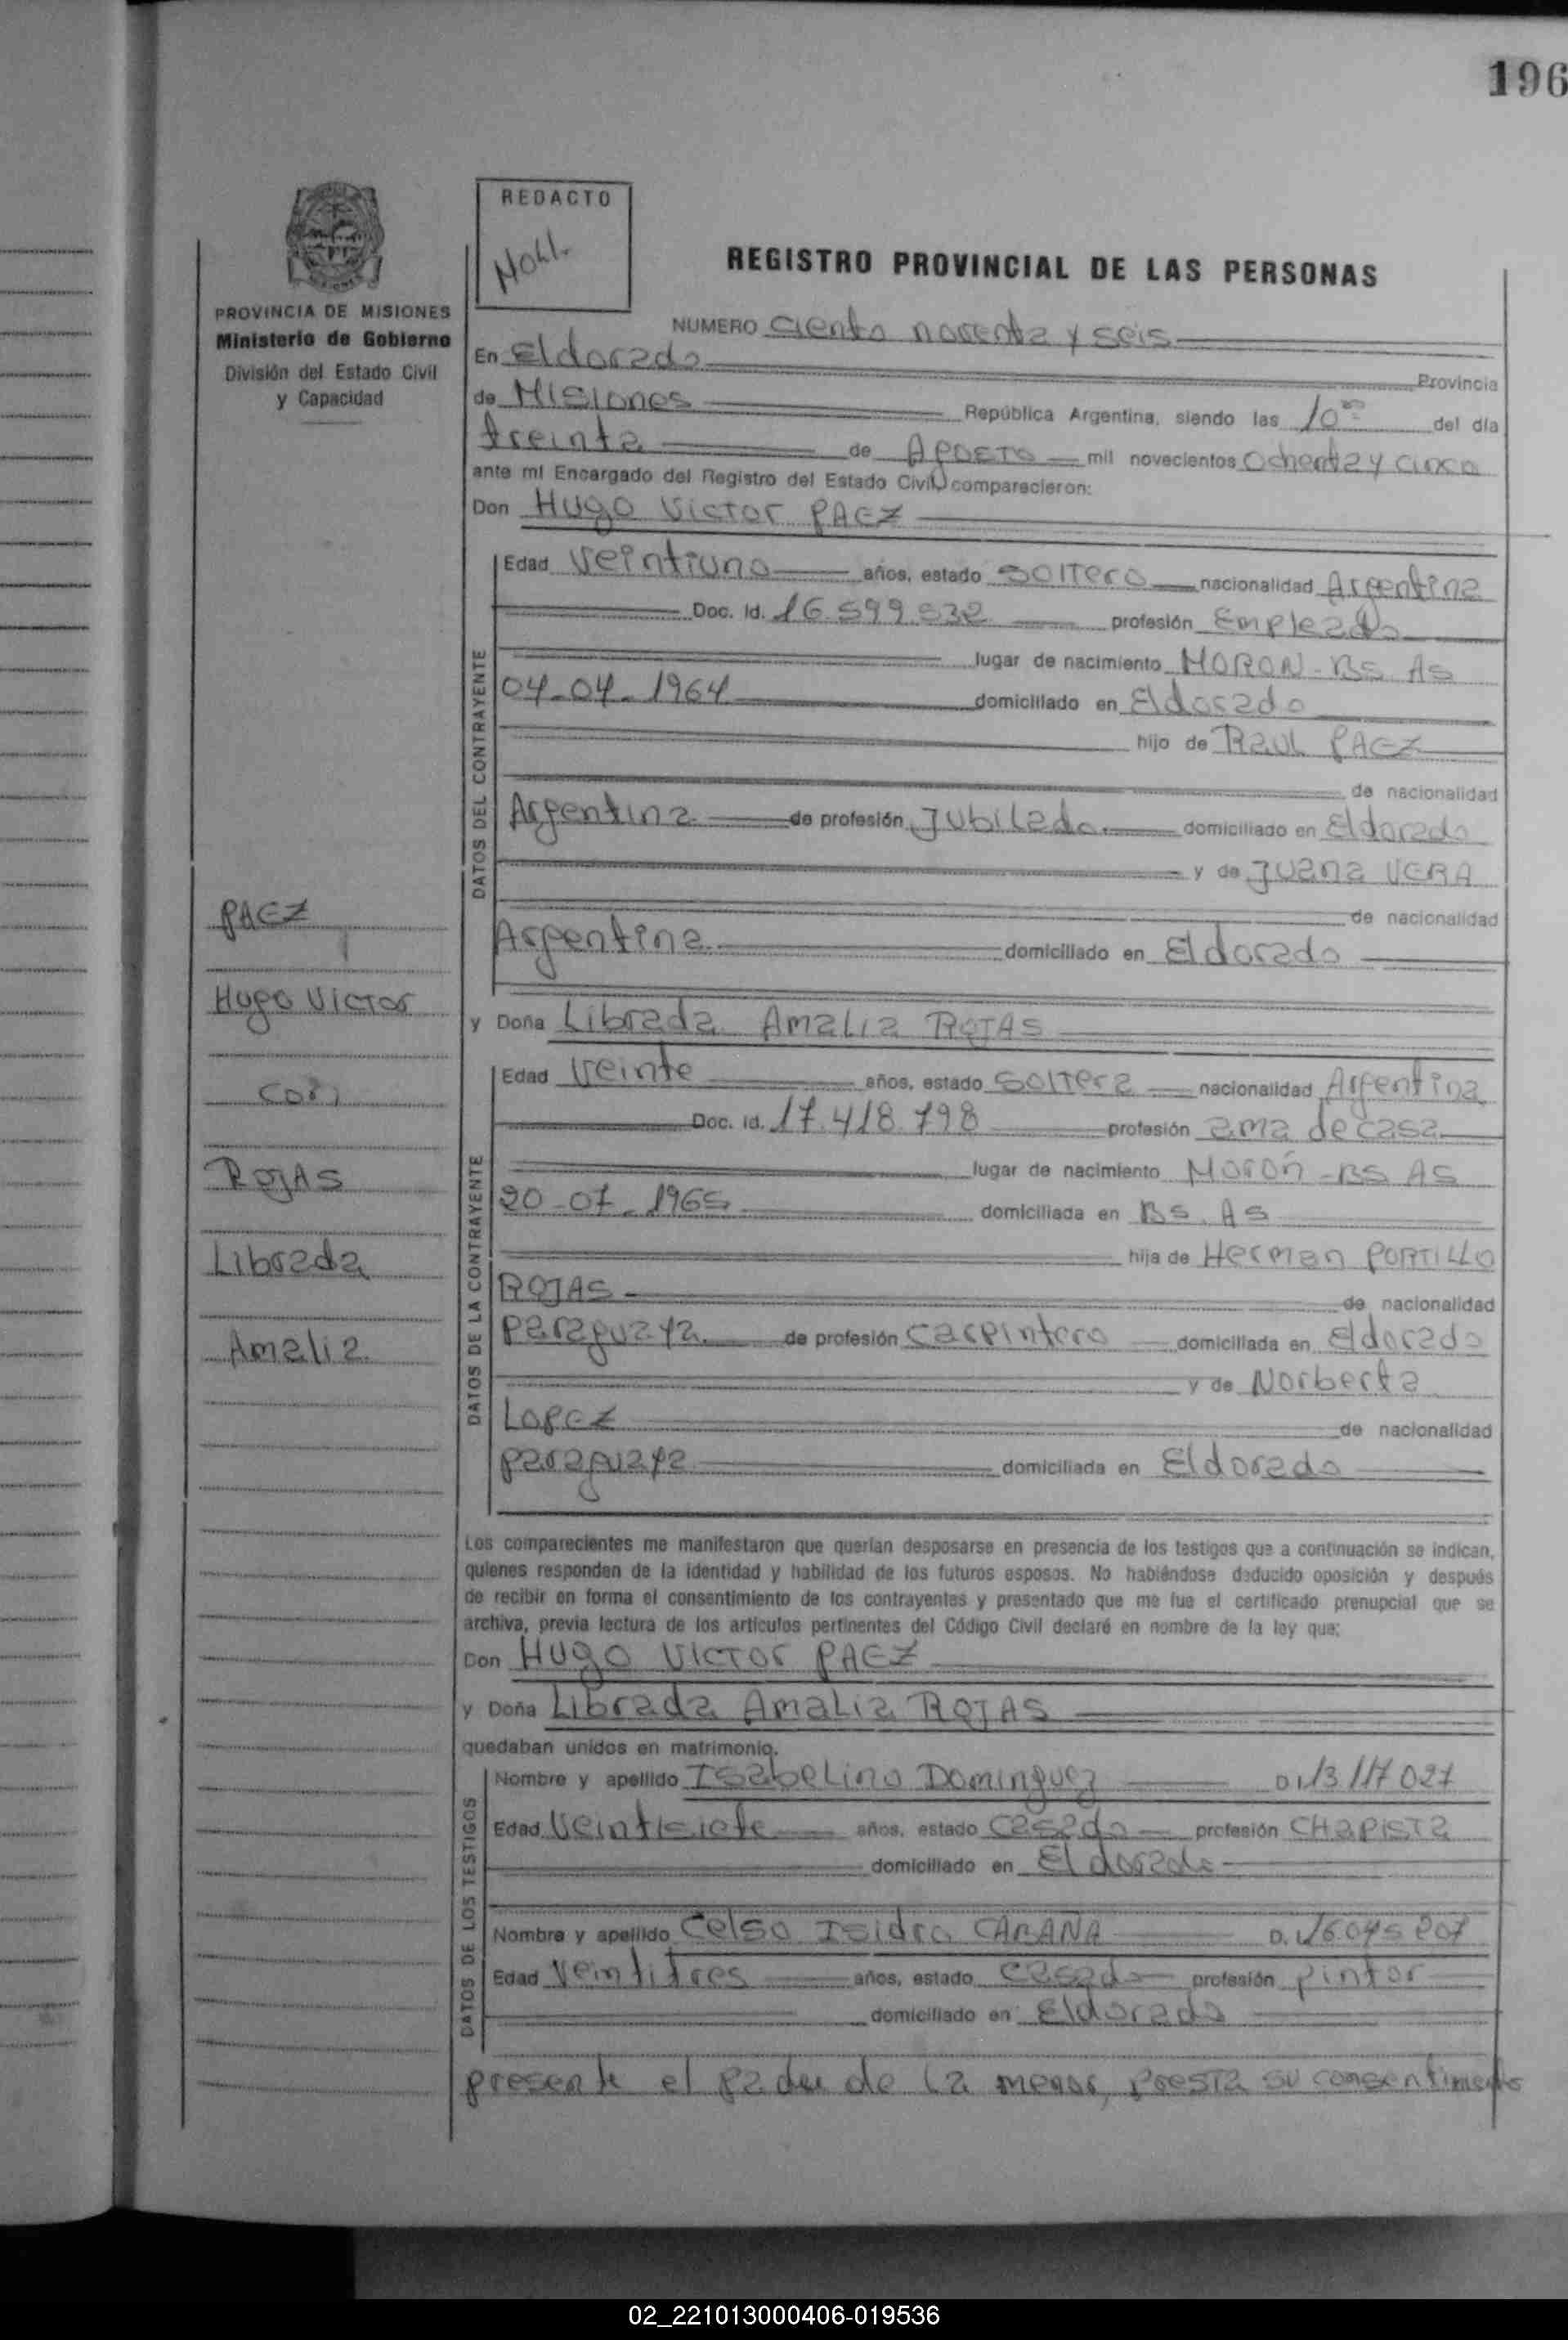 196
REDACTO
PROVINCIA DE MISIONES
Ministerio de Gobierno
División del Estado Civil
y Capacidad
REGISTRO PROVINCIAL DE LAS PERSONAS
NUMERO Ciento noventa y seis
En Eldorado Provincia
de Misiones República Argentina, siendo las 10 del día
treinta de Agosto mil novecientos Ochenta y cinco
ante mí Encargado del Registro del Estado Civil comparecieron:
Don Hugo Victor PAEZ
DATOS DEL CONTRAYENTE
Edad Veintiuno años, estado SOLTERO nacionalidad Argentina
Doc. Id. 16.599.532 profesión Empleado
lugar de nacimiento MORON - Bs As
04-04-1964 domiciliado en Eldorado
hijo de Raul PAEZ
de nacionalidad
Argentina de profesión Jubilado domiciliado en Eldorado
y de Juana VERA
de nacionalidad
Argentina domiciliado en Eldorado
y Doña Librada Amalia ROJAS
DATOS DE LA CONTRAYENTE
Edad Veinte años, estado Soltera nacionalidad Argentina
Doc. Id. 17.418.798 profesión ama de casa
lugar de nacimiento Morón - BS AS
20-07-1965 domiciliada en Bs. As
hija de Herman PORTILLO
ROJAS de nacionalidad
Paraguaya de profesión Carpintero domiciliada en Eldorado
y de Norberta
LOPEZ de nacionalidad
paraguaya domiciliada en Eldorado
PAEZ
Hugo Victor
con
ROJAS
Librada
Amalia
Los comparecientes me manifestaron que querían desposarse en presencia de los testigos que a continuación se indican,
quienes responden de la identidad y habilidad de los futuros esposos. No habiéndose deducido oposición y después
de recibir en forma el consentimiento de los contrayentes y presentado que me fue el certificado prenupcial que se
archiva, previa lectura de los artículos pertinentes del Código Civil declaré en nombre de la ley que:
Don Hugo Victor PAEZ
y Doña Librada Amalia ROJAS
quedaban unidos en matrimonio.
DATOS DE LOS TESTIGOS
Nombre y apellido Isabelino Dominguez D.I 13.117.027
Edad Veintisiete años, estado Casado profesión CHapista
domiciliado en Eldorado
Nombre y apellido Celso Isidro CABAÑA D.I 16.045.207
Edad Veintitres años, estado Casado profesión pintor
domiciliado en Eldorado
presente el padre de la menor, presta su consentimiento
02_221013000406-019536